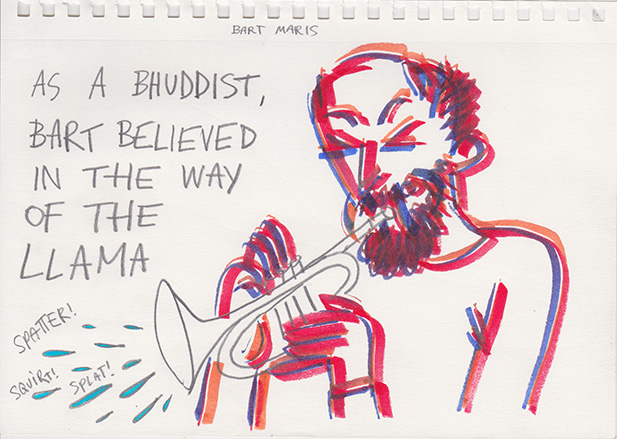 BART MARIS
AS A BHUDDIST,
BART BELIEVED
IN THE WAY
OF THE
LLAMA
SPATTER!
SQUIRT!
SPLAT!